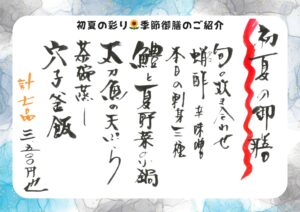 初夏の彩り🌻季節御膳のご紹介
初夏の御膳
旬の炊き合わせ
蛸酢 辛味噌
本日の刺身三種
鱧と夏野菜の鍋
太刀魚の天ぷら
茶碗蒸し
穴子釜飯
計七品 三五〇〇円也